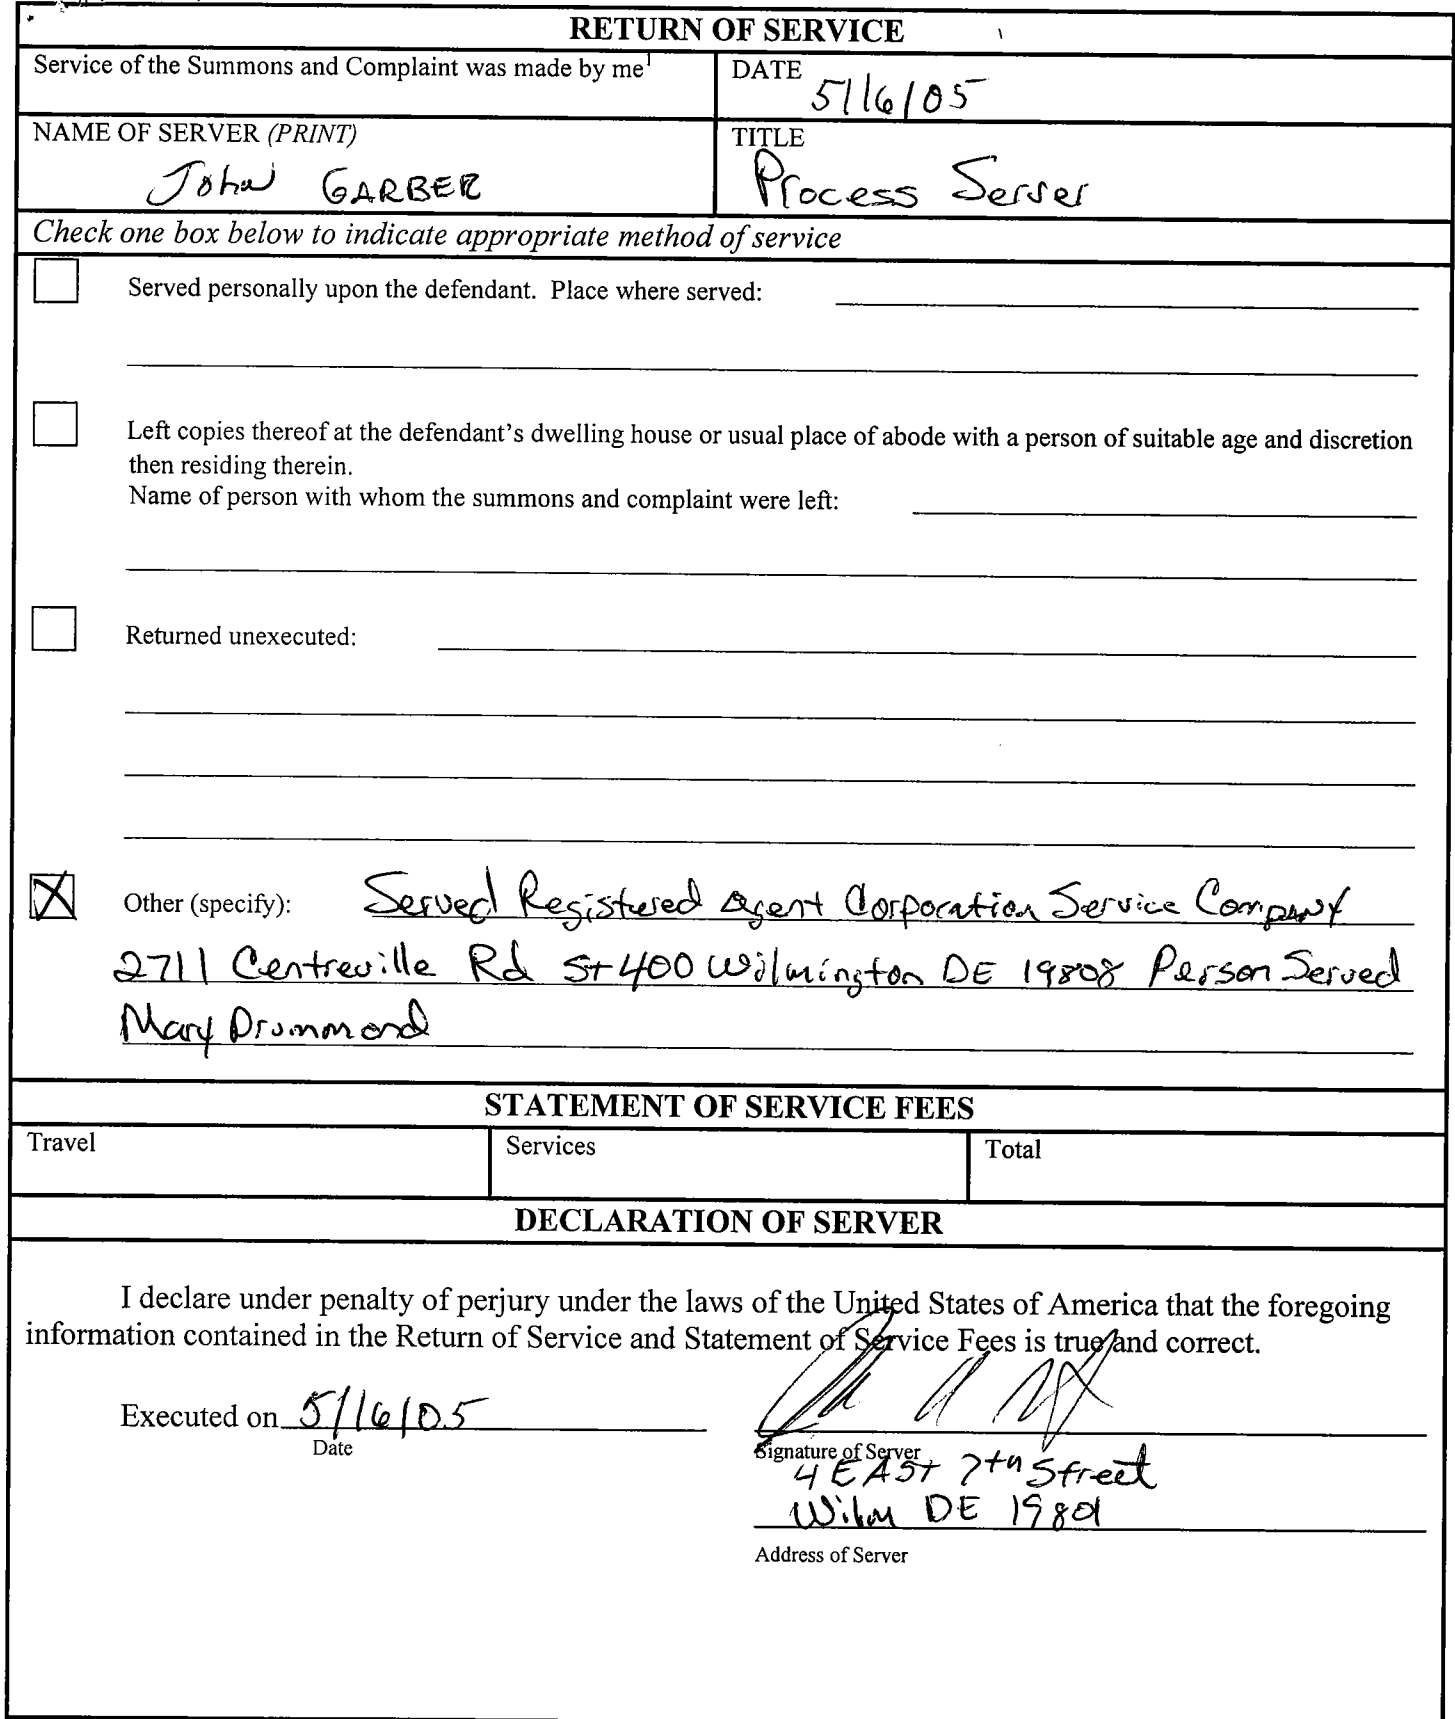 RETURN OF SERVICE
Service of the Summons and Complaint was made by me1
DATE
5/16/05
NAME OF SERVER (PRINT)
John GARBER
TITLE
Process Server
Check one box below to indicate appropriate method of service
Served personally upon the defendant. Place where served:
Left copies thereof at the defendant's dwelling house or usual place of abode with a person of suitable age and discretion
then residing therein.
Name of person with whom the summons and complaint were left:
Returned unexecuted:
Other (specify): Served Registered Agent Corporation Service Company
2711 Centreville Rd St 400 Wilmington DE 19808 Person Served
Mary Drummond
STATEMENT OF SERVICE FEES
Travel
Services
Total
DECLARATION OF SERVER
I declare under penalty of perjury under the laws of the United States of America that the foregoing
information contained in the Return of Service and Statement of Service Fees is true and correct.
Executed on 5/16/05
Date
Signature of Server
4 EAST 7th Street
Wilm DE 19801
Address of Server